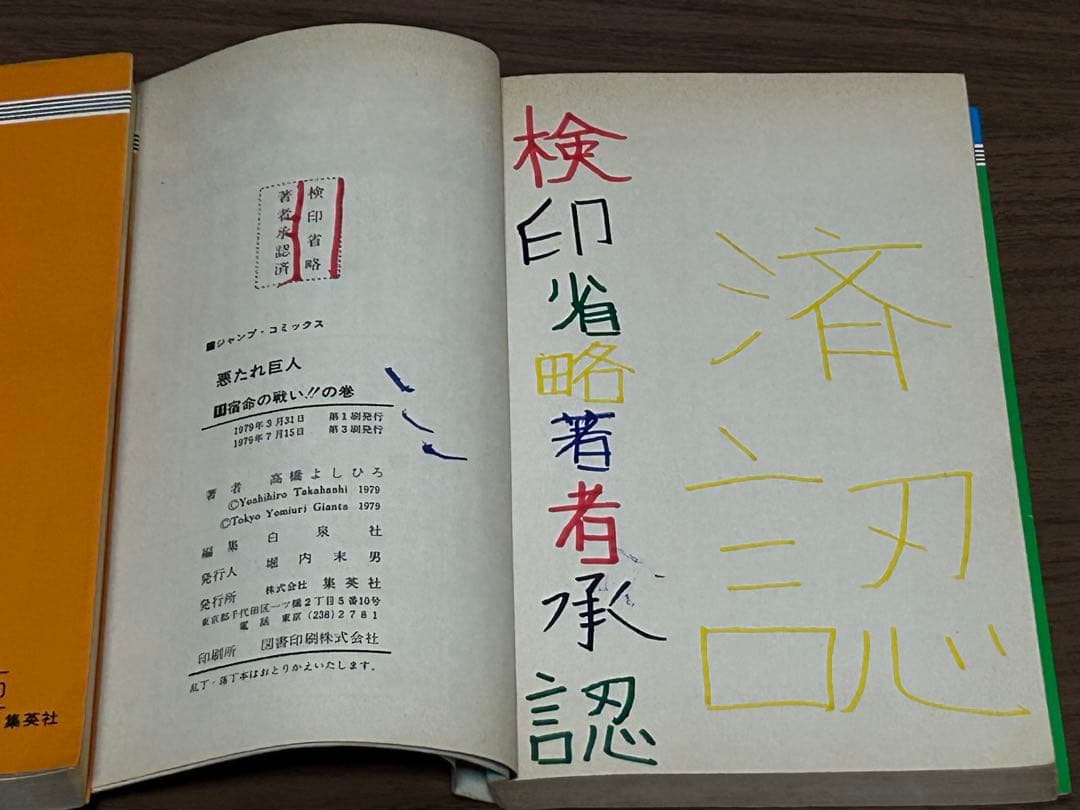 検印省略
著者承認済
ジャンプ・コミックス
悪たれ巨人
11宿命の戦い!!の巻
1979年3月31日 第1刷発行
1979年7月15日 第3刷発行
著者 高橋よしひろ
©Yoshihiro Takahashi 1979
©Tokyo Yomiuri Giants 1979
編集 白泉社
発行人 堀内末男
発行所 株式会社 集英社
東京都千代田区一ツ橋2丁目5番10号
電話 東京(238)2781
印刷所 図書印刷株式会社
乱丁・落丁本はおとりかえいたします。
集英社
検印省略著者承認
済
認